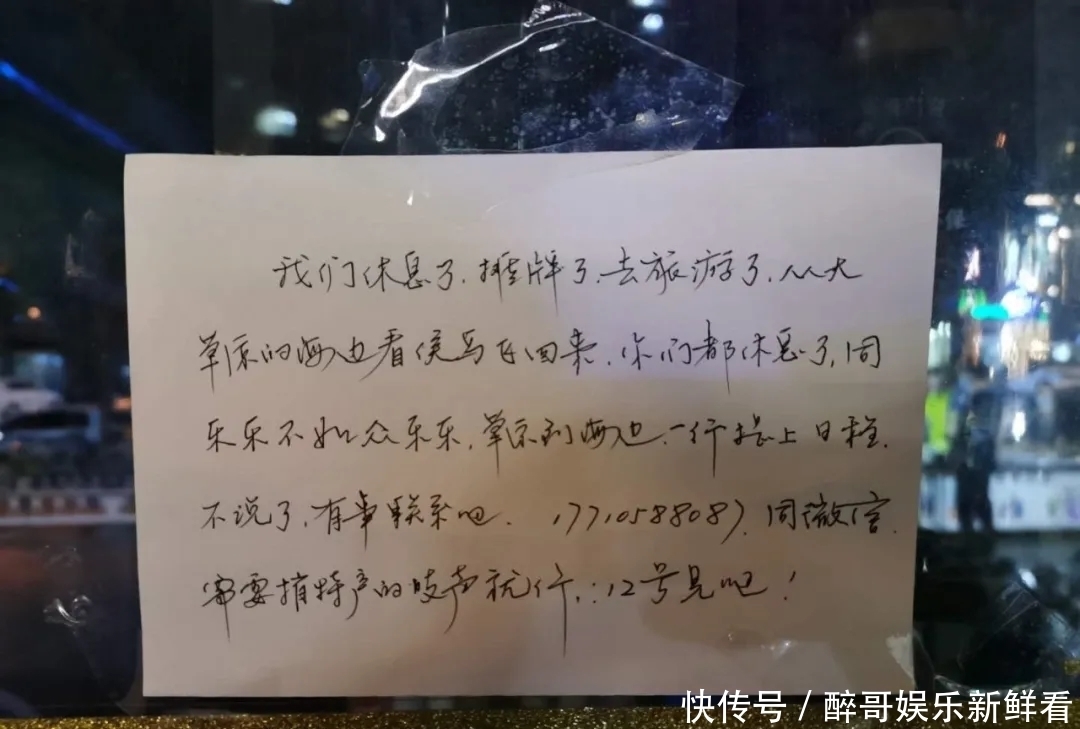 我们休息了.摧牌了.去旅游了.从大
草原的海边看候鸟飞回来.你们都休息了,同
乐乐不如众乐乐.草原到海边.一行提上日程.
不说了.有事联系吧. 17710588087.同微信.
需要捎特产的吱声就行.:12号见吧!
快传号/醉哥娱乐新鲜看